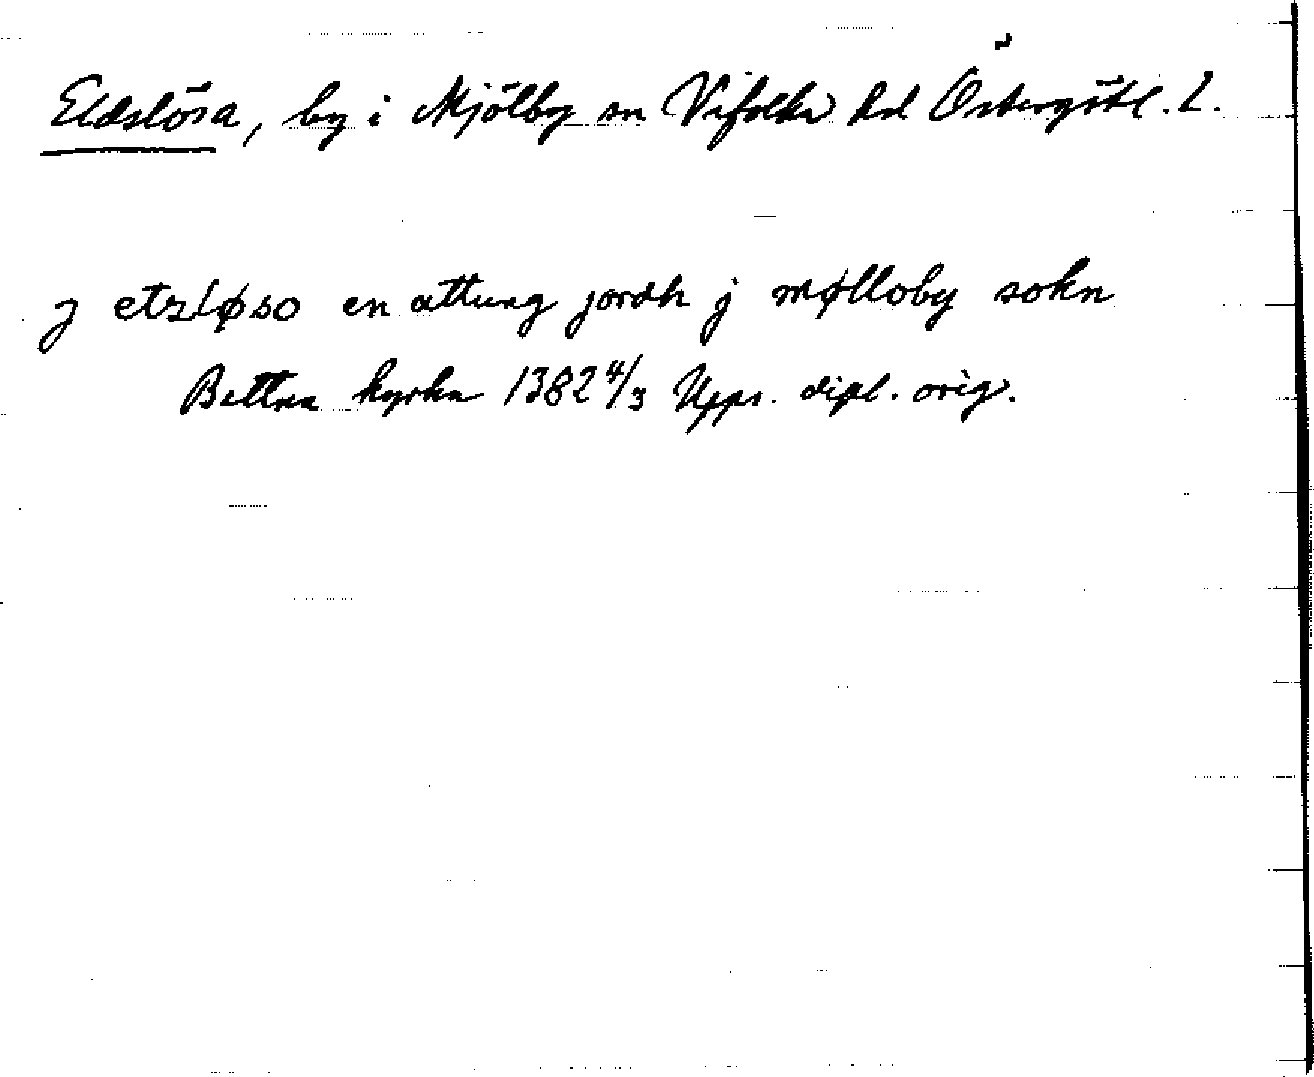 Eldslösa, by i Mjölby sn Vifolka hd Östergötl. L.
j etzløso en attung jordh j mølloby sokn
Bettna kyrka 1382 4/3 Upps. dipl. orig.